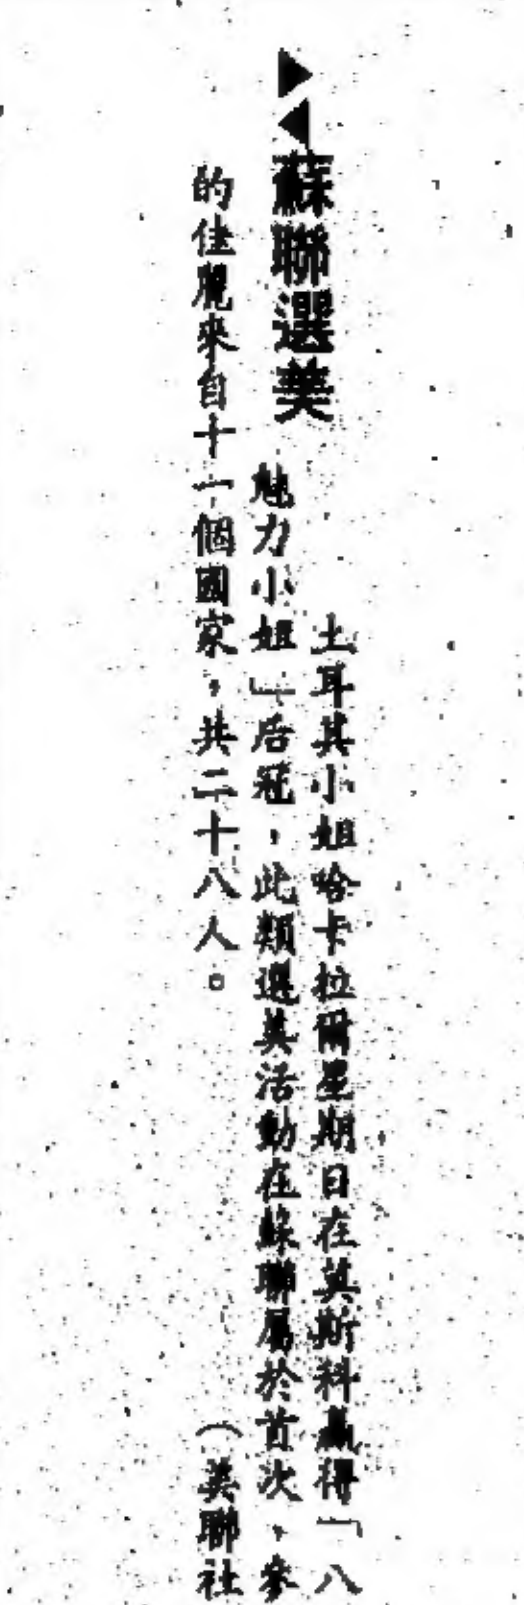 ▶◀蘇聯選美
土耳其小姐哈卡拉爾星期日在莫斯科贏得「八
魅力小姐」后冠，此類選美活動在蘇聯屬於首次，參
的佳麗來自十一個國家，共二十八人。（美聯社